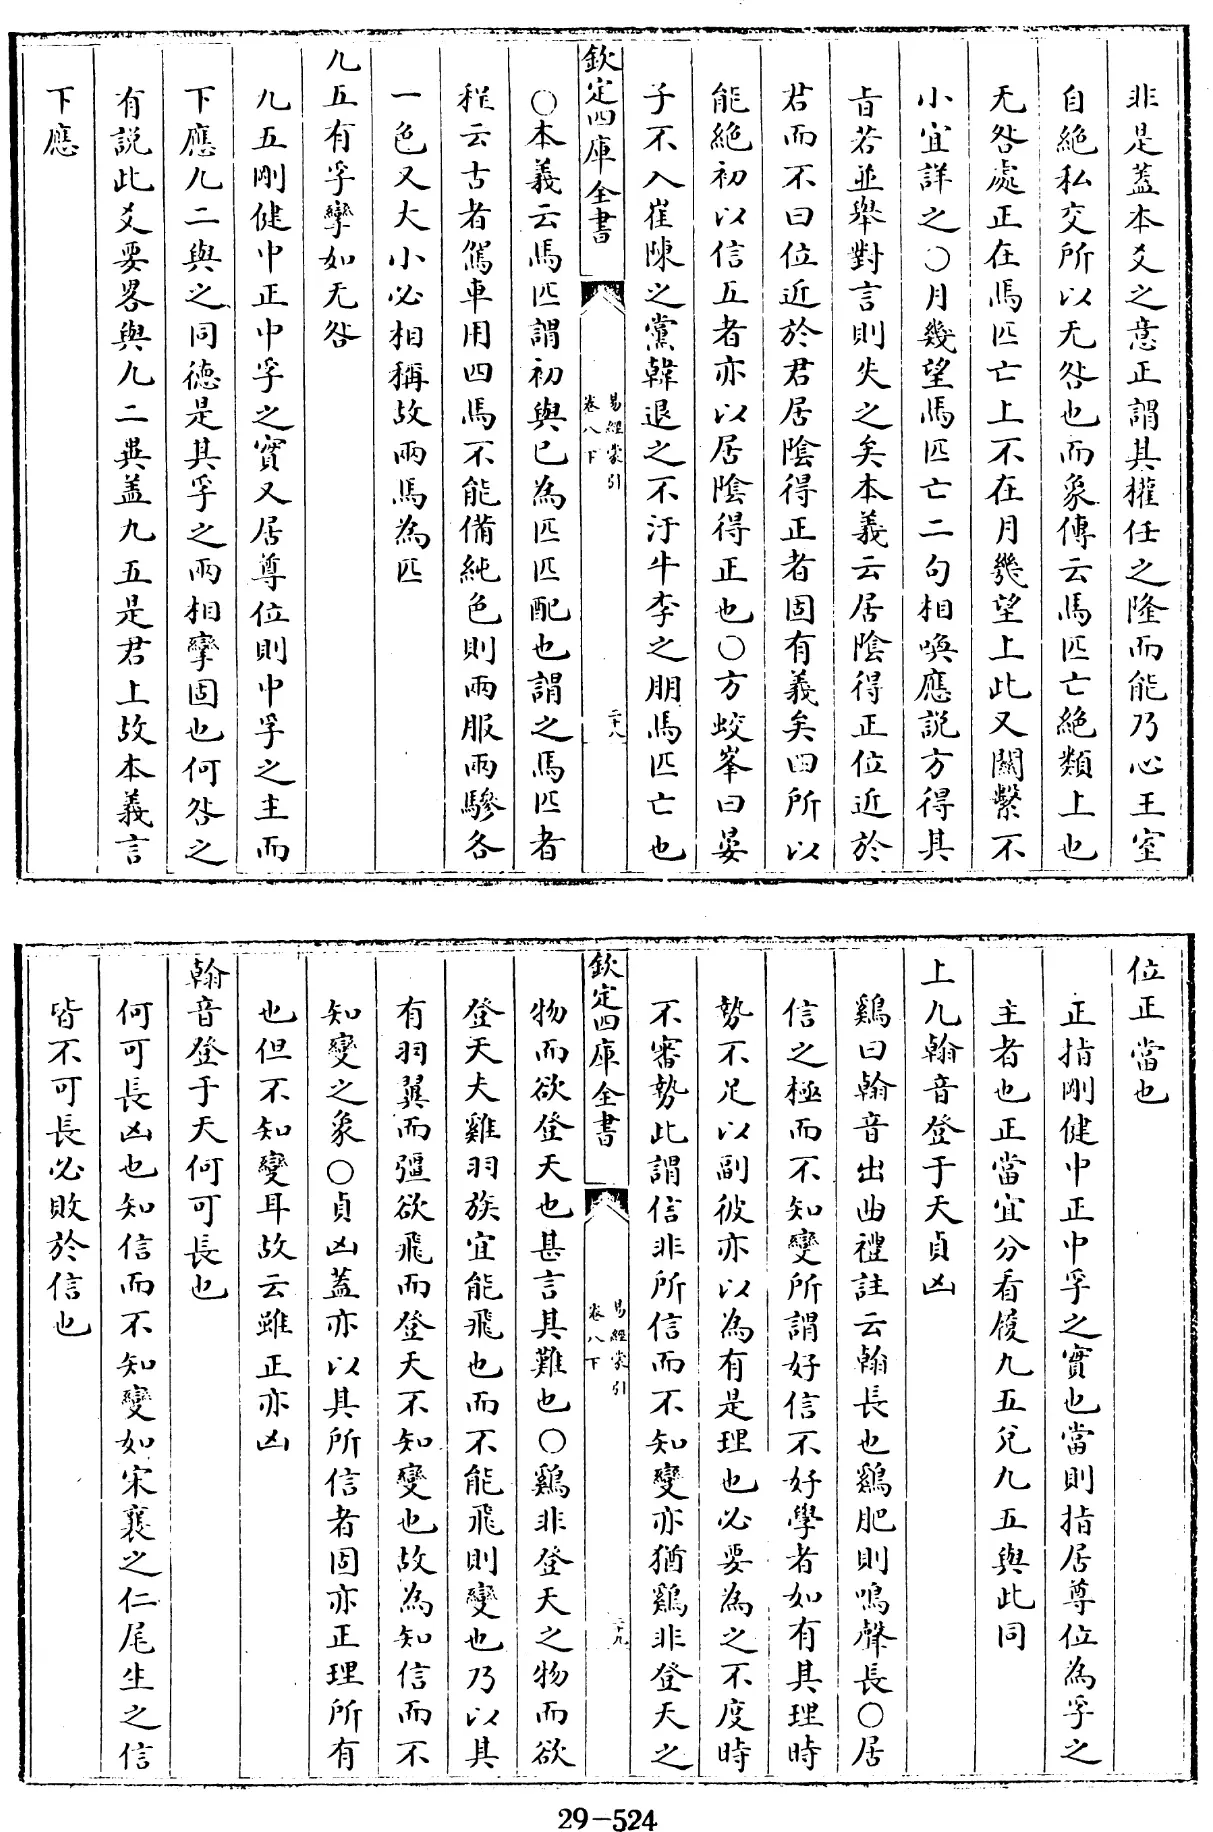 非是蓋本爻之意正謂其權任之隆而能乃心王室
自絶私交所以无咎也而象傳云馬匹亡絶類上也
无咎處正在馬匹亡上不在月幾望上此又關繫不
小宜詳之○月幾望馬匹亡二句相喚應説方得其
旨若並舉對言則失之矣本義云居陰得正位近於
君而不曰位近於君居陰得正者固有義矣四所以
能絶初以信五者亦以居陰得正也○方蛟峯曰晏
子不入崔陳之黨韓退之不汙牛李之朋馬匹亡也
欽定四庫全書
易經蒙引
卷八下
二十八
○本義云馬匹謂初與已為匹匹配也謂之馬匹者
程云古者駕車用四馬不能備純色則兩服兩驂各
一色又大小必相稱故兩馬為匹
九五有孚攣如无咎
九五剛健中正中孚之實又居尊位則中孚之主而
下應九二與之同德是其孚之兩相攣固也何咎之
有説此爻要畧與九二異盖九五是君上故本義言
下應
位正當也
正指剛健中正中孚之實也當則指居尊位為孚之
主者也正當宜分看履九五兑九五與此同
上九翰音登于天貞凶
鷄曰翰音出曲禮註云翰長也鷄肥則鳴聲長○居
信之極而不知變所謂好信不好學者如有其理時
勢不足以副彼亦以為有是理也必要為之不度時
不審勢此謂信非所信而不知變亦猶鷄非登天之
欽定四庫全書
易經蒙引
卷八下
二十九
物而欲登天也甚言其難也○鷄非登天之物而欲
登天夫雞羽族宜能飛也而不能飛則變也乃以其
有羽翼而彊欲飛而登天不知變也故為知信而不
知變之象○貞凶蓋亦以其所信者固亦正理所有
也但不知變耳故云雖正亦凶
翰音登于天何可長也
何可長凶也知信而不知變如宋襄之仁尾生之信
皆不可長必敗於信也
29-524